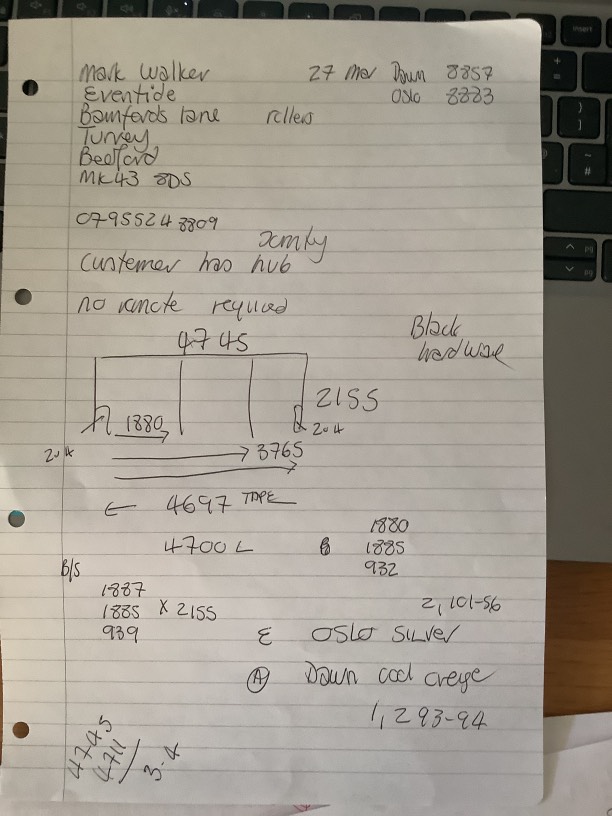 Mark Walker 27 Mar Down 8857
Eventide Oslo 8883
Bamfords lane rollers
Turvey
Bedford
MK43 8DS
07955248809
Somfy
customer has hub
no remote required
Black
hardware
4745
2155
1880
204
204
3765
← 4697 TAPE
4700 L
1880
B 1885
932
B/S
1887
1885 x 2155
939
2,101-56
E OSLO SILVER
A Down cool creye
1,293-94
4745
4711 / 3.4